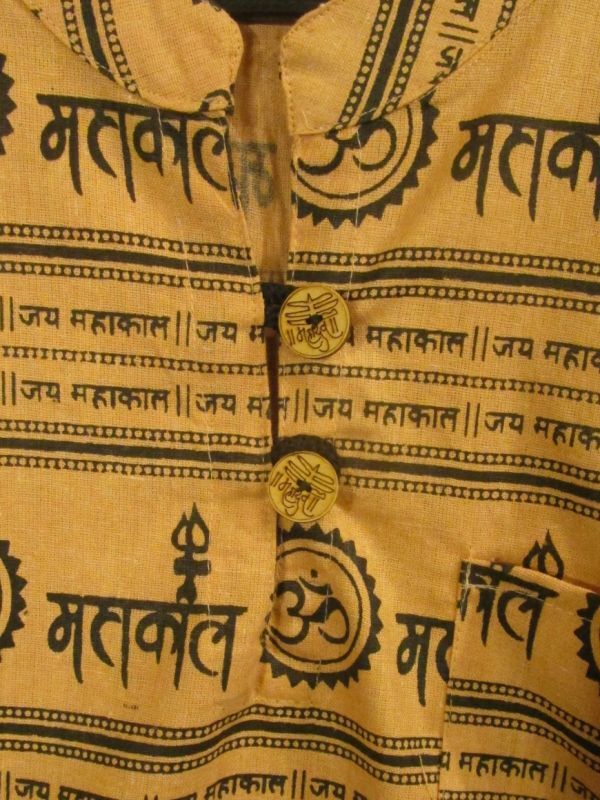 महाकाल ॐ महाकाल
||जय महाकाल||जय म महाकाल||जय महाकाल||जय महाक
जय महाकाल||जय म जय महाकाल||जय महाकाल||जय
महादेव
महादेव
महाकाल ॐ महाकाल
||जय महाकाल||जय महाकाल||जय महाकाल||जय